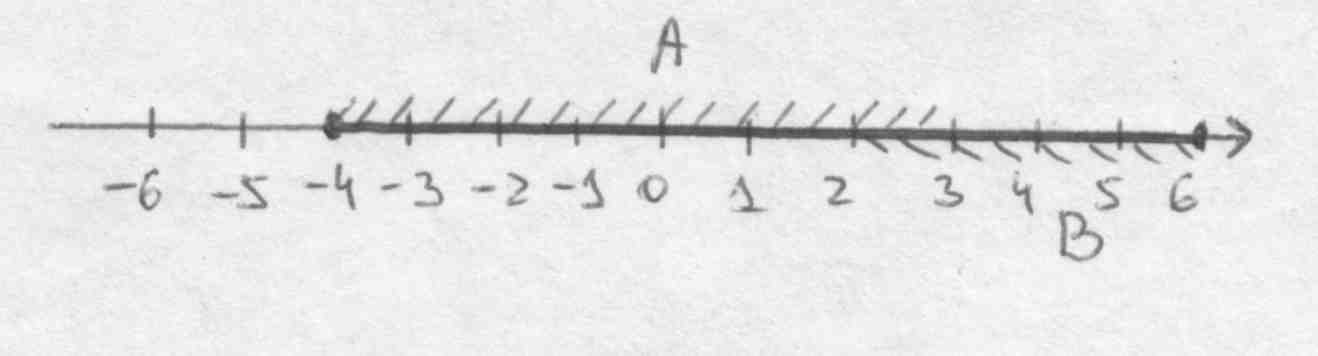 A
-6 -5 -4 -3 -2 -1 0 1 2 3 4 5 6
B